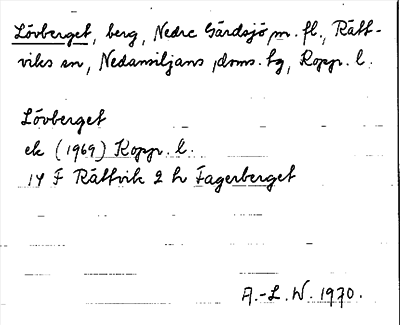 Lövberget, berg, Nedre Gärdsjö m. fl., Rätt-
viks sn, Nedansiljans doms. tg, Kopp. l.
Lövberget
ek (1969) Kopp. l.
14 F Rättvik 2 h Fagerberget
A.-L. W. 1970.